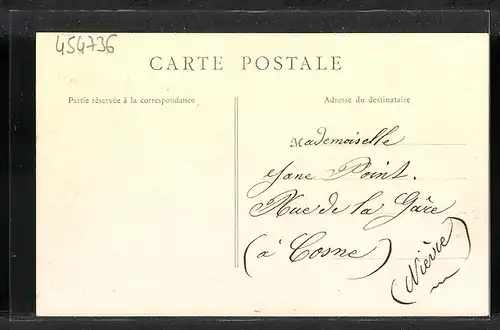 454736
CARTE POSTALE
Partie réservée à la correspondance
Adresse du destinataire
Mademoiselle
Jane Point.
Rue de la Gâre
(à Cosne)
(Nièvre)